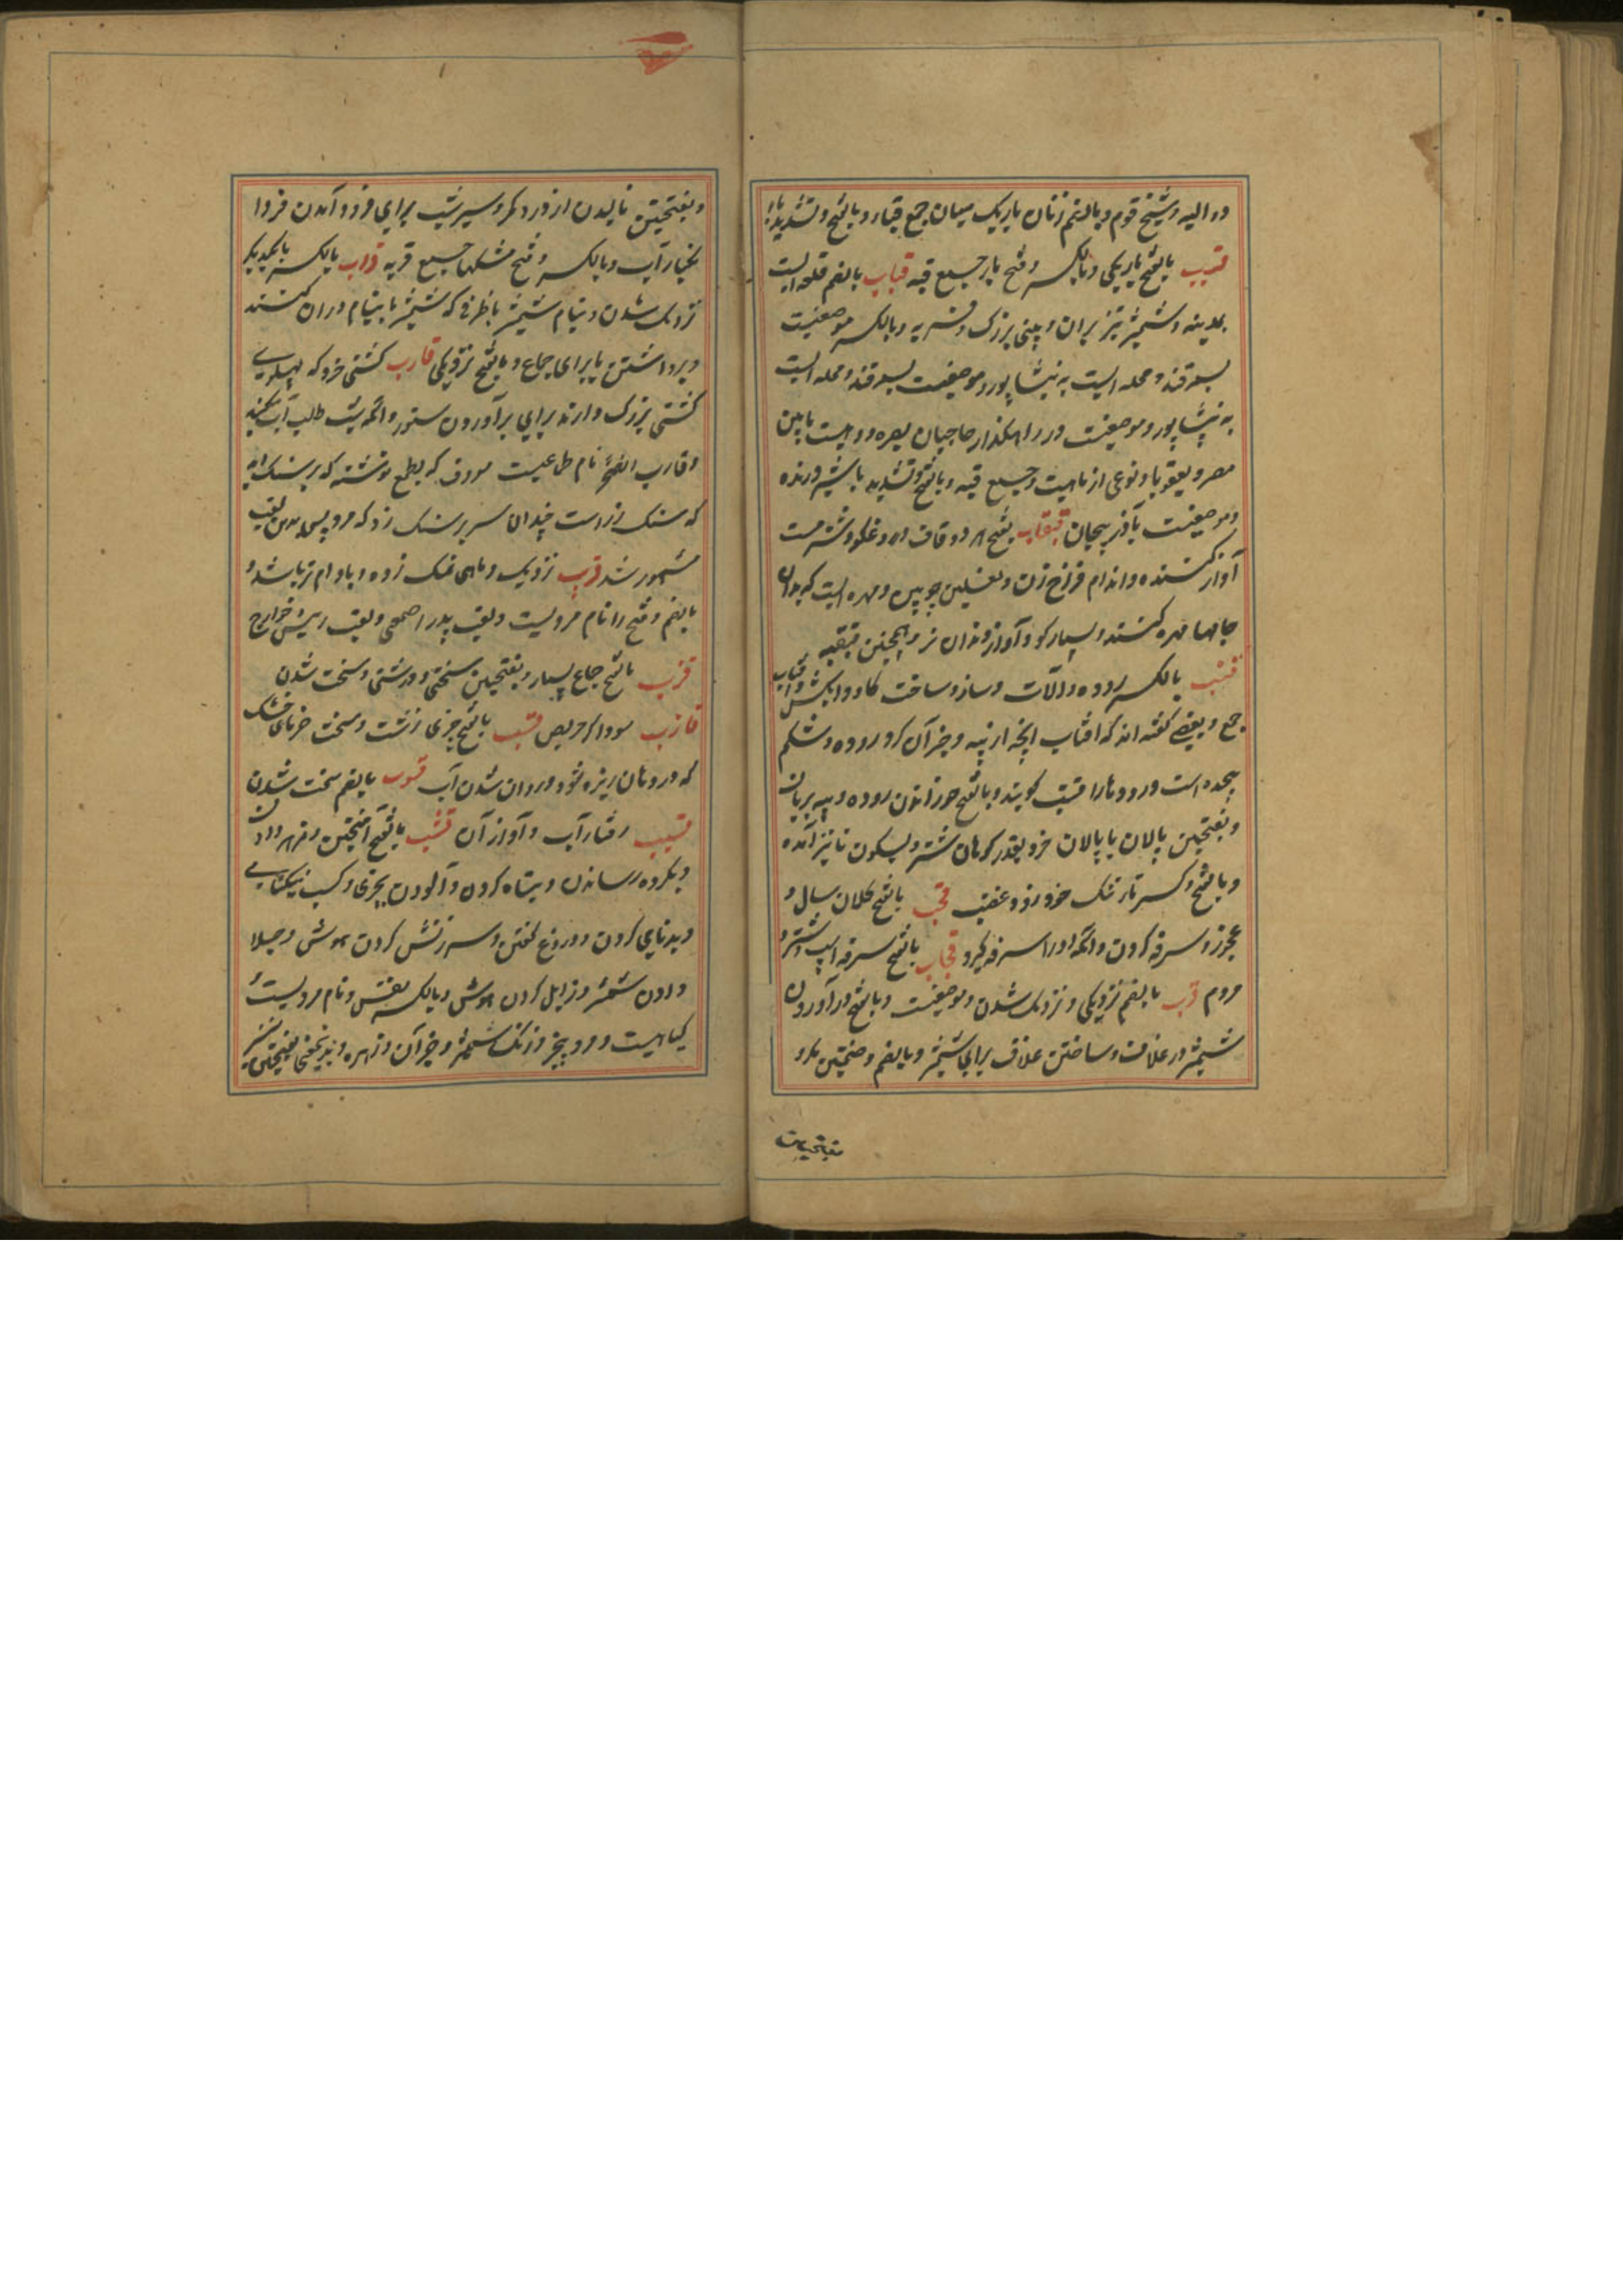 در الیه و شیخ قوم و بالضم زنان باریک میان جمع قباء و بالفتح و تشدید با
قبب بالفتح باریکی و بالکسر و فتح با جمیع قبه قباب بالضم قلعه ایست
بمدینه و شمشیر تیز بران و بینی بزرگ و فربه و بالکسر موضعیست
بسمرقند و محله ایست به نیشاپور و موضعیست بسمرقند و محله ایست
به نیشاپور و موضعیست در راهگذار حاجیان بصره و دهیست مابین
مصر و یعقوبا و نوعی از ماهیست و جمیع قبه و بالفتح و تشدید با شیر درنده
و موضعیست بآذربیجان قبقاب بفتح هر دو قاف دروغگو و شتر مست
آواز کننده و اندام فراخ زن و نعلین چوبین و مهره ایست که بدان
جامها مهره کنند و بسیار کو و آواز دندان نر و همچنین قبقبه
قتب بالکسر روده و آلات و ساز و ساخت کاو و آبکش و اقتاب
جمع و بعضی کفته اند که اقتاب انچه از پیه و جز آن کرد روده و شکم
پیچیده است و رودهارا قتب کویند و بالفتح خوراندن روده و پیه بریان
و بفتحتین پالان یا پالان خرد بقدر کوهان شتر و بسکون تا نیز آمده
و بالفتح و کسر تا تنک خو و زود غضب قحب بالفتح کلان سال و
عجوز و سرفه کردن و انکه اورا سرفه کیرد قحاب بالفتح سرفه اسپ و شتر و
مردم قرب بالضم نزدیکی و نزدیک شدن و موضعیست و بالفتح درآوردن
شمشیر در غلاف و ساختن غلاف برای شمشیر و بالضم و ضمتین
بفتحتین
و بفتحتین نالیدن از درد کمر و سیر شب برای فرود آمدن فردا
بکنار آب و بالکسر و فتح مشکها جمیع قربه قراب بالکسر بایکدیگر
نزدیک شدن و نیام شمشیر یا ظرفی که شمشیر با نیام دران کنند
و برداشتن پا برای جماع و بالفتح نزدیکی قارب کشتی خرد که پهلوی
کشتی بزرک دارند برای برآوردن ستور و انکه شب طلب آب کند
و قارب نام طاعیست معروف که بطع نوشته که بر سنک
که سنک زر است چندان سر بر سنک زد که مرد پس بدین لقب
مشهور شد قرب نزدیک و ماهی نمک زده و بادام تر باشد و
بالضم و فتح را نام مردیست و لقب پدر اصمعی و لقب رئیس خوارج
قزب بالفتح جماع بسیار و بفتحتین سختی و درشتی و سخت شدن
قازب سوداکر حریص قسب بالفتح چیزی زشت و سخت خرمای خشک
که در دهان ریزه شود و روان شدن آب قسوب بالضم سخت شدن
قسیب رفتار آب و آواز آن قشب بالفتح آمیختن و زهر دادن
و بکروه رسانیدن و تباه کردن و آلودن بچیزی و کسب نیکنامی
و بدنامی کردن و دروغ کفتن و سرزنش کردن موش و جلا
دادن شمشیر و زایل کردن هوش و بالکسر نفس و نام مردیست
کیاهیست و مرد بی خیر و زنک شمشیر و جز آن و زهره و بدینمعنی بفتحتین نیز